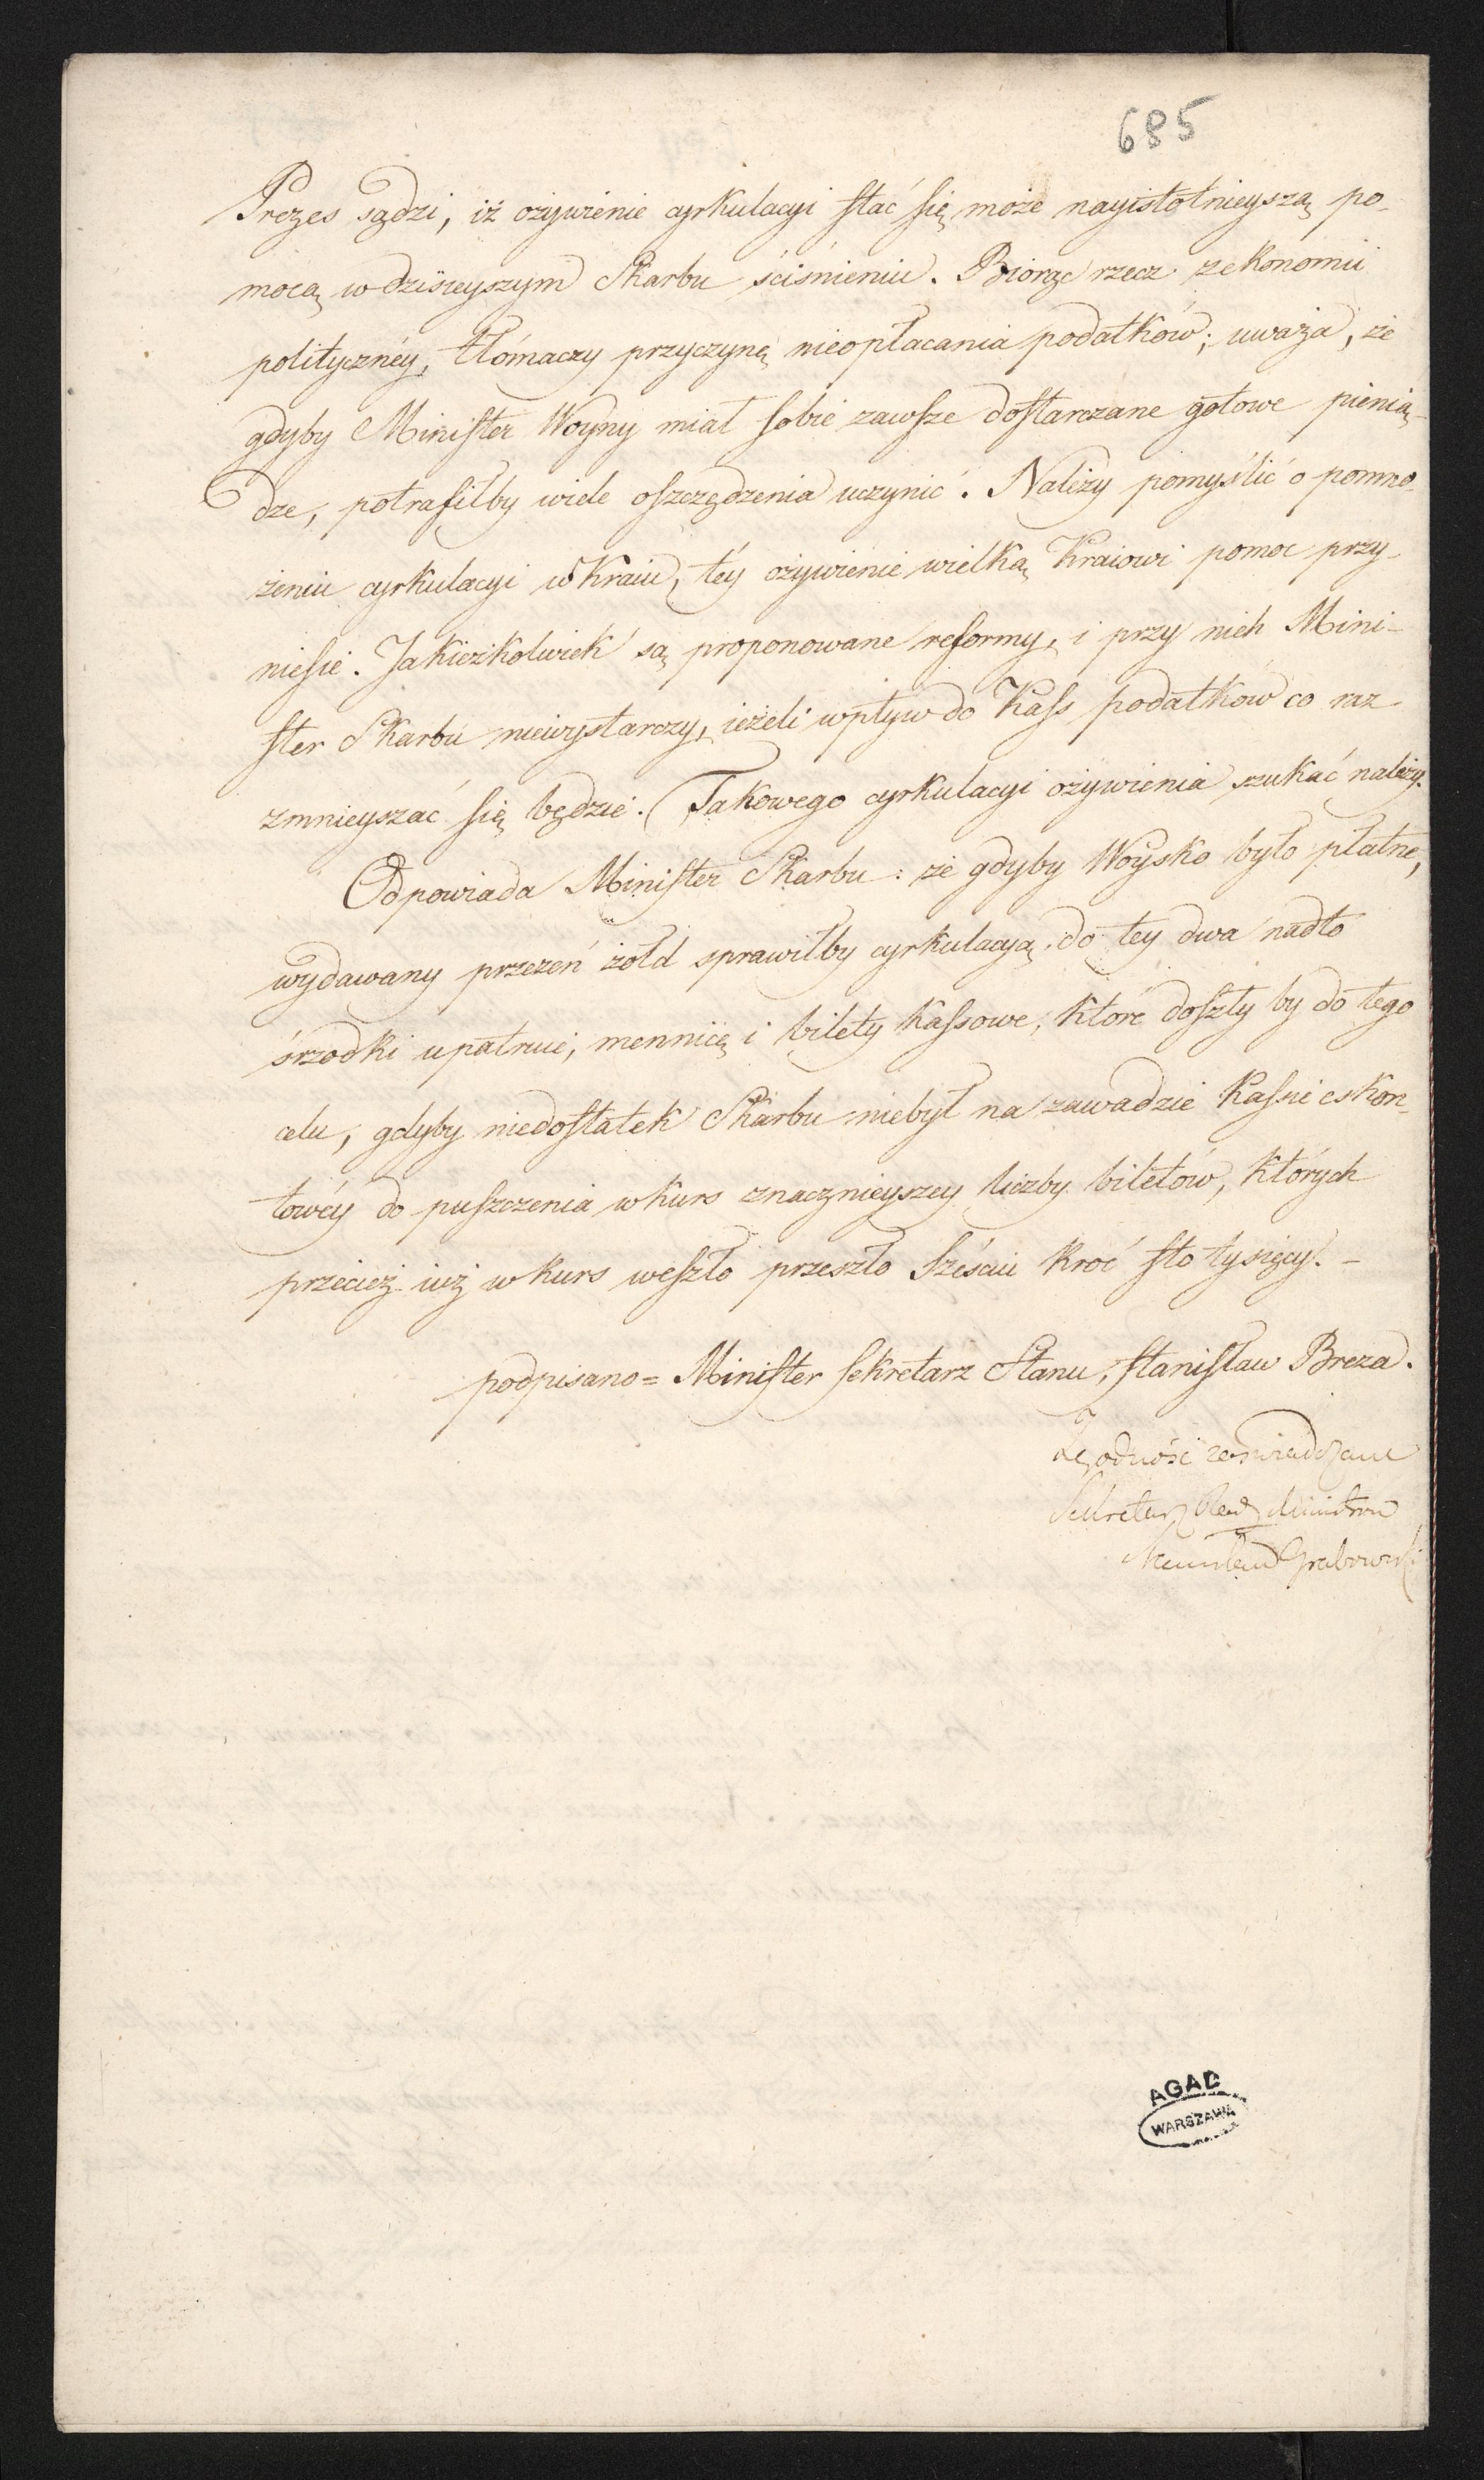 685
Prezes sądzi, iż ożywienie cyrkulacyi stać się może nayistotnieyszą po-
mocą w dzisieyszym Skarbu ściśnieniu. Biorąc rzecz z ekonomii
polityczney, tłómaczy przyczynę nieopłacania podatków; uważa, że
gdyby Minister Woyny miał sobie zawsze dostarczane gotowe pienią-
dze, potrafiłby wiele oszczędzenia uczynić. Należy pomyślić o pomno-
żeniu cyrkulacyi w Kraiu, téy ożywienie wielką Kraiowi pomoc przy-
niesie. Jakieżkolwiek są proponowane reformy, i przy nich Mini-
ster Skarbu niewystarczy, ieżeli wpływ do Kass podatków co raz
zmnieyszać się będzie. Takowego cyrkulacyi ożywienia szukać należy.
Odpowiada Minister Skarbu: że gdyby Woysko było płatne,
wydawany przezeń żołd sprawiłby cyrkulacyą. do tey dwa nadto
śrzodki upatruie, mennicę i bilety kassowe, które doszły by do tego
celu, gdyby niedostatek Skarbu niebył na zawadzie Kassie eskon-
towéy do puszczenia w kurs znacznieyszey liczby biletów, których
przecież iuż w kurs weszło przeszło sześciu kroć sto tysięcy. -
podpisano = Minister Sekretarz Stanu, Stanisław Breza.
Zgodność zaświadczam
Sekretarz Rady Ministrów
Stanisław Grabowski
AGAD
WARSZAWA